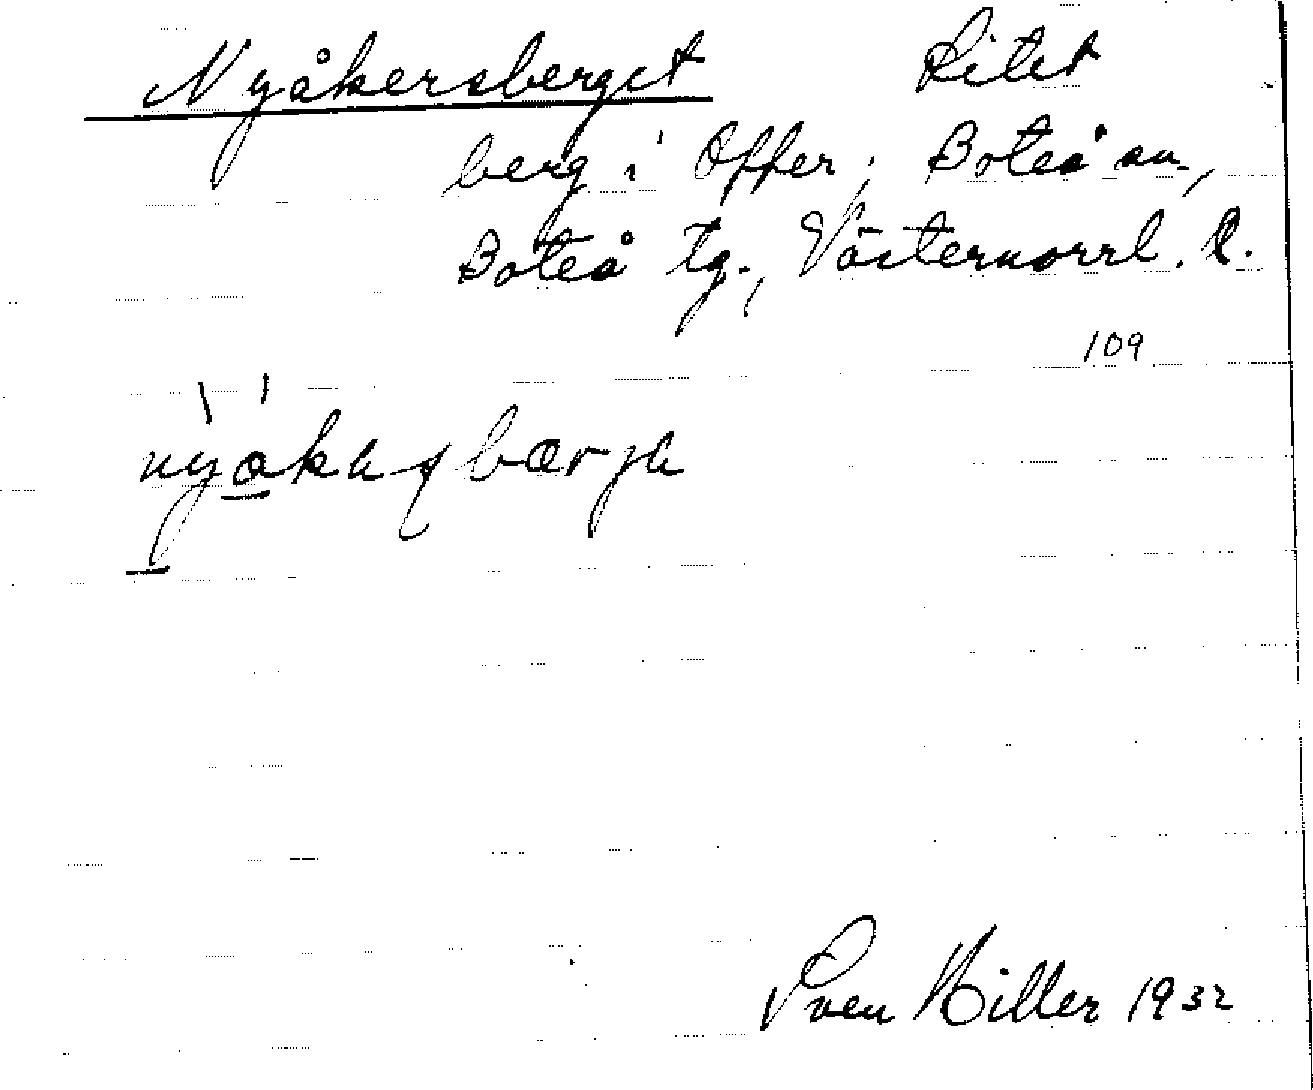 Nyåkersberget Litet
berg i Offer, Boteå sn.,
Boteå tg., Västernorrl. l.
109
Sven Hiller 1932